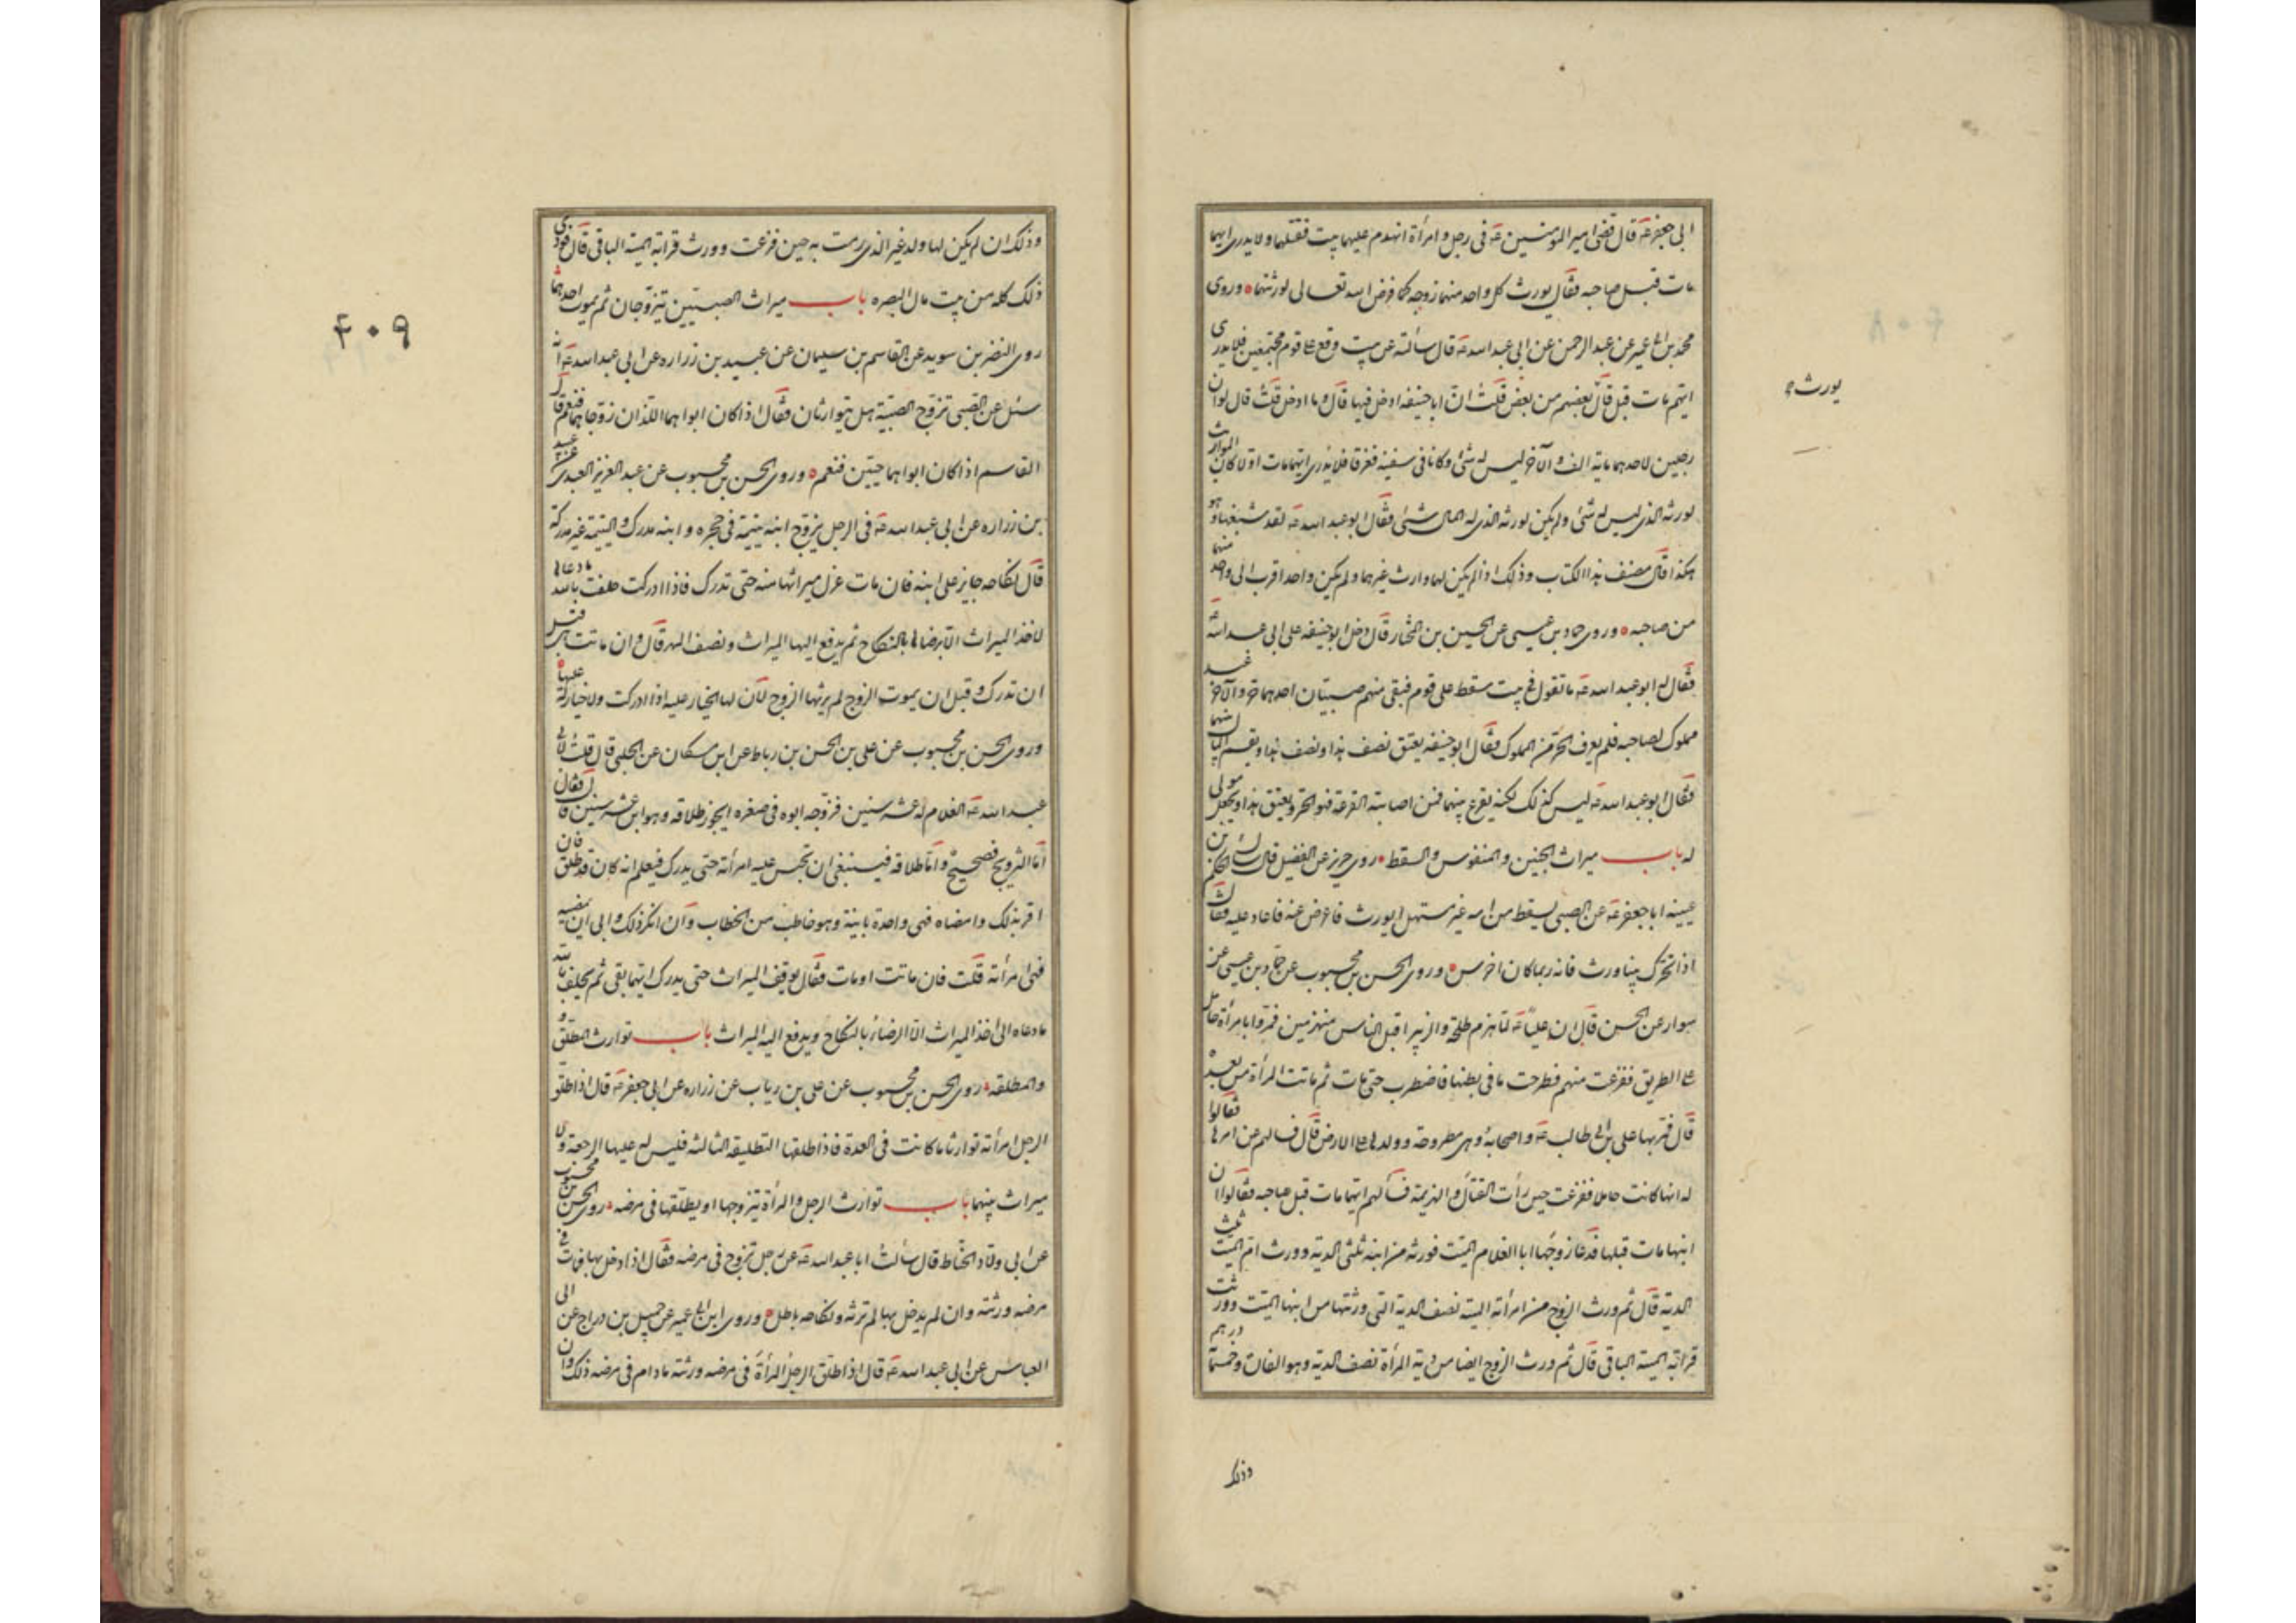 ابى جعفر عه قال قضى امير المؤمنين عه فى رجل وامرأة انهدم عليهما بيت فقتلهما ولا يدرى ايهما
مات قبل صاحبه فقال يورث كل واحد منهما زوجه كما فرض الله تعالى لورثتهما وروى
محمد بن ابى عمير عن عبد الرحمن عن ابى عبد الله عه قال سألته عن بيت وقع على قوم مجتمعين فلا يدرى
ايهم مات قبل قال يورث بعضهم من بعض قلت ان ابا حنيفه ادخل فيها قال وما ادخل قلت قال لو ان
رجلين لاحدهما ماية الف والآخر ليس له شئ وكانا فى سفينه فغرقا فلا يدرى ايهما مات اولا كان الميراث
لورثه الذى ليس له شئ ولم يكن لورثه الذى له المال شئ فقال ابو عبد الله عه لقد شنعها وهو
هكذا قال مصنف هذا الكتاب وذلك اذا لم يكن لهما وارث غيرهما ولم يكن واحد اقرب الى واحد منهما
من صاحبه وروى حماد بن عيسى عن الحسين بن المختار قال دخل ابو حنيفه على ابى عبد الله عه
فقال له ابو عبد الله عه ما تقول فى بيت سقط على قوم فبقى منهم صبيان احدهما حر والآخر عبد
مملوك لصاحبه فلم يعرف الحر من المملوك فقال ابو حنيفه يعتق نصف هذا ونصف هذا ويقسم المال بينهما
فقال ابو عبد الله عه ليس كذلك لكنه يقرع بينهما فمن اصابته القرعة فهو الحر ويعتق هذا ويجعل مولى
له باب ميراث الجنين والمنفوس والسقط روى حريز عن الفضيل قال سأل الحكم بن
عيينه ابا جعفر عه عن الصبى يسقط من امه غير مستهل أيورث فاعرض عنه فاعاد عليه فقال
اذا تحرك بينا ورث فانه ربما كان اخرس وروى الحسن بن محبوب عن حماد بن عيسى عن
سوار عن الحسن قال ان عليا عه لما هزم طلحة والزبير اقبل الناس منهزمين فمروا بامرأة حامل
على الطريق ففزعت منهم فطرحت ما فى بطنها فاضطرب حتى مات ثم ماتت المرأة من بعده
قال فمر بها على بن ابى طالب عه واصحابه وهى مطروحة وولدها على الارض قال فسألهم عن امرها فقالوا
له انها كانت حاملا ففزعت حين رأت القتال والهزيمة فسألهم ايهما مات قبل صاحبه فقالوا ان
ابنها مات قبلها فدعا زوجها ابا الغلام الميت فورثه من ابنه ثلثى الدية وورث ام الميت ثلث
الدية قال ثم ورث الزوج من امرأته الميتة نصف الدية التى ورثتها من ابنها الميت وورثت
قرابة الميتة الباقى قال ثم ورث الزوج ايضا من دية المرأة نصف الدية وهو الفان وخمسمائة درهم
وذلك
يورث
وذلك ان لم يكن لها ولد غير الذى رمت به حين فزعت وورث قرابة الميتة الباقى قال فودى
ذلك كله من بيت مال البصره باب ميراث الصبيين يتزوجان ثم يموت احدهما
روى النضر بن سويد عن القاسم بن سليمان عن عبيد بن زراره عن ابى عبد الله عه انه
سئل عن الصبى تزوج الصبية هل يتوارثان فقال اذا كان ابواهما اللذان زوجاهما فنعم قال
القاسم اذا كان ابواهما حيين فنعم وروى الحسن بن محبوب عن عبد العزيز العبدى عن عبيد
بن زراره عن ابى عبد الله عه فى الرجل يزوج ابنه يتيمة فى حجره وابنه مدرك واليتيمة غير مدركة
قال نكاحه جايز على ابنه فان مات عزل ميراثها منه حتى تدرك فاذا ادركت حلفت بالله ما دعاها
لاخذ الميراث الا رضاها بالنكاح ثم يدفع اليها الميراث ونصف المهر قال وان ماتت هى قبل
ان تدرك وقبل ان يموت الزوج لم يرثها الزوج لان لها الخيار عليه اذا ادركت ولا خيار له عليها
وروى الحسن بن محبوب عن على بن الحسن بن رباط عن ابن مسكان عن الحلبى قال قلت لابى
عبد الله عه الغلام له عشر سنين فزوجه ابوه فى صغره ايجوز طلاقه وهو ابن عشر سنين قال فقال
اما التزويج فصحيح واما طلاقه فينبغى ان تحبس عليه امرأته حتى يدرك فيعلم انه كان قد طلق فان
اقر بذلك وامضاه فهى واحدة باينة وهو خاطب من الخطاب وان انكر ذلك وابى ان يمضيه
فهى امرأته قلت فان ماتت او مات فقال يوقف الميراث حتى يدرك ايهما بقى ثم يحلف بالله
ما دعاه الى اخذ الميراث الا الرضاء بالنكاح ويدفع اليه الميراث باب توارث المطلق
والمطلقه روى الحسن بن محبوب عن على بن رياب عن زراره عن ابى جعفر عه قال اذا طلق
الرجل امرأته توارثا ما كانت فى العدة فاذا طلقها التطليقه الثالثه فليس له عليها الرجعة ولا
ميراث بينهما باب توارث الرجل والمرأة يتزوجها او يطلقها فى مرضه روى الحسن بن محبوب
عن ابى ولاد الحناط قال سألت ابا عبد الله عه عن رجل تزوج فى مرضه فقال اذا دخل بها فمات فى
مرضه ورثته وان لم يدخل بها لم ترثه ونكاحه باطل وروى ابن ابى عمير عن جميل بن دراج عن ابى
العباس عن ابى عبد الله عه قال اذا طلق الرجل المرأة فى مرضه ورثته ما دام فى مرضه ذلك وان
۴۰۹